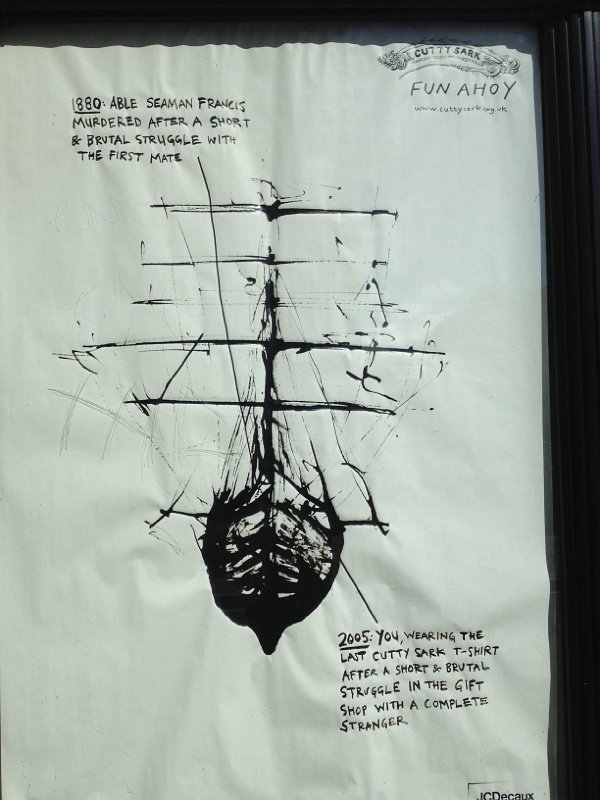 CUTTY SARK
FUN AHOY
www.cuttysark.org.uk
1880: ABLE SEAMAN FRANCIS
MURDERED AFTER A SHORT
& BRUTAL STRUGGLE WITH
THE FIRST MATE
2005: YOU, WEARING THE
LAST CUTTY SARK T-SHIRT
AFTER A SHORT & BRUTAL
STRUGGLE IN THE GIFT
SHOP WITH A COMPLETE
STRANGER
JCDecaux